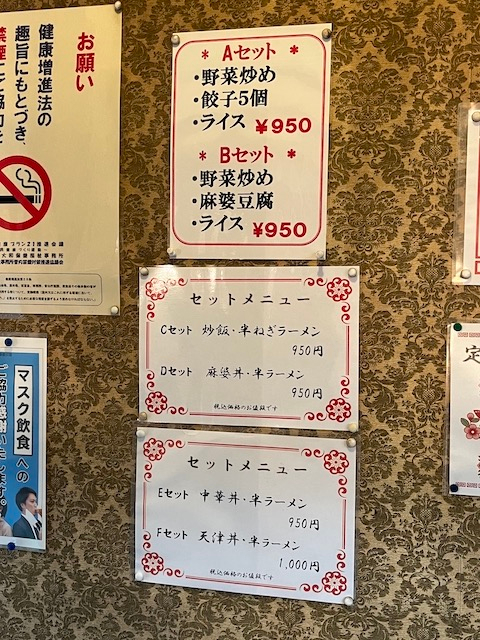 お願い
健康増進法の
趣旨にもとづき、
＊ Aセット ＊
・野菜炒め
・餃子5個
・ライス ¥950
＊ Bセット ＊
・野菜炒め
・麻婆豆腐
・ライス ¥950
セットメニュー
Cセット 炒飯・半ねぎラーメン
950円
Dセット 麻婆丼・半ラーメン
950円
税込価格のお値段です
セットメニュー
Eセット 中華丼・半ラーメン
950円
Fセット 天津丼・半ラーメン
1,000円
税込価格のお値段です
マスク飲食への
ご協力感謝いたします。
定